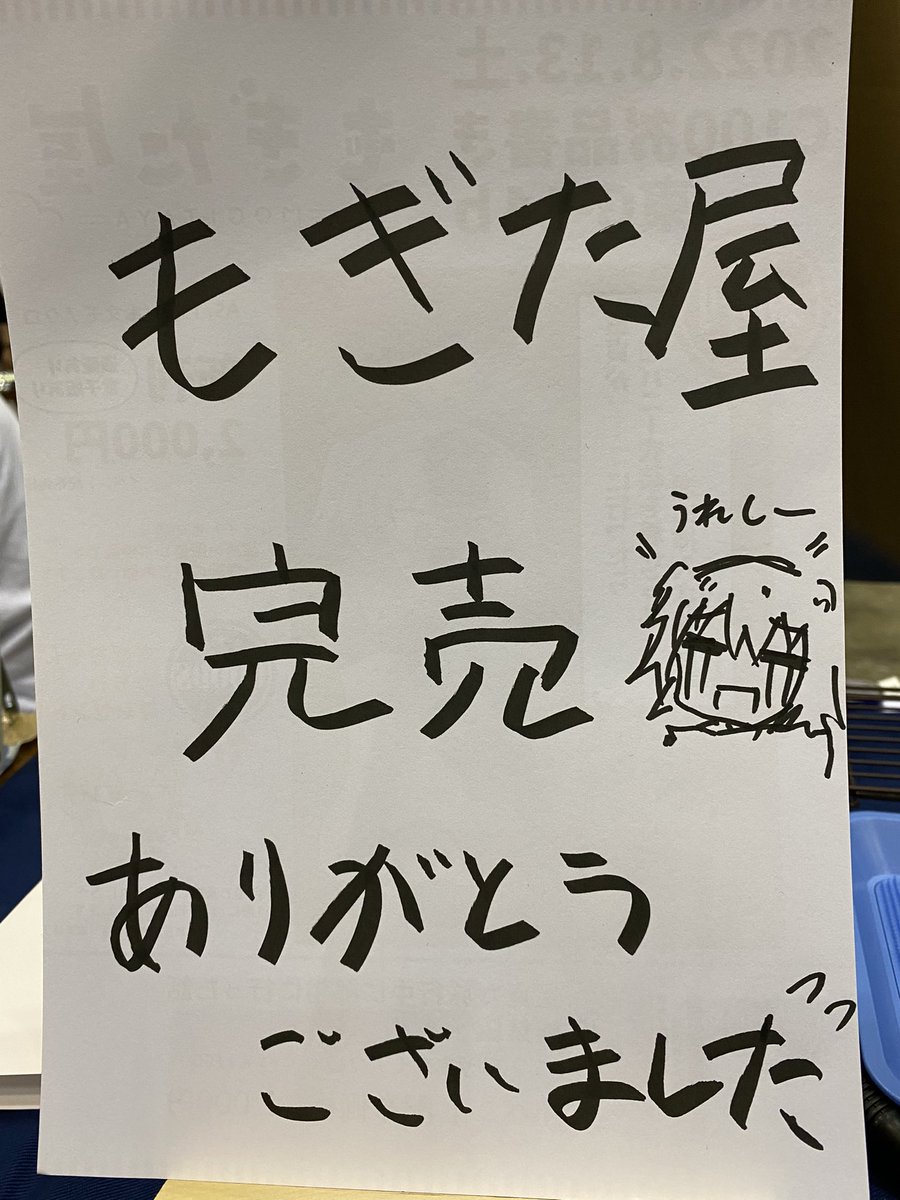 もぎた屋
完売
うれしー
ありがとう
ございましたっっ